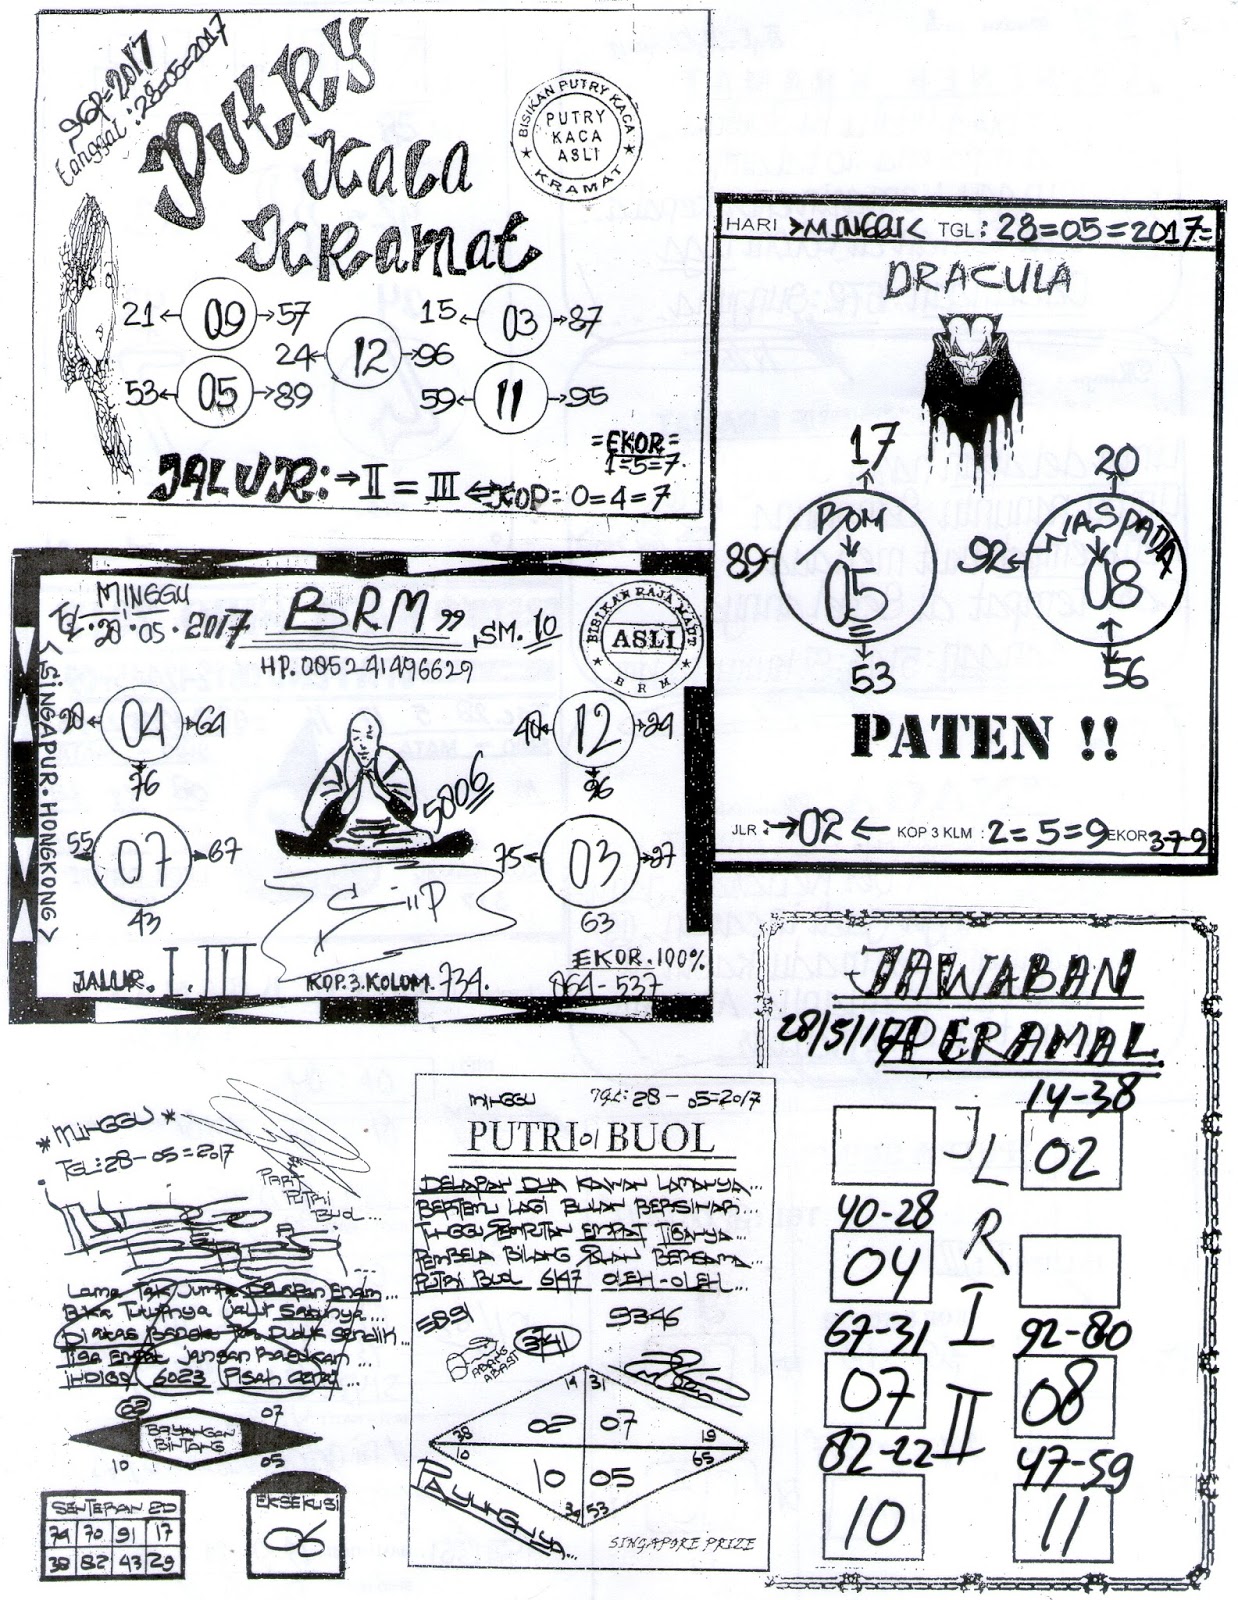 PGP=2017
Tanggal : 28=05=2017
PUTRY
KACA
KRamat
BISIKAN PUTRY KACA
PUTRY
KACA
ASLI
KRAMAT
21 09 57
15 03 87
24 12 96
53 05 89
59 11 95
=EKOR=
1=5=7.
JALUR: II = III KOP= 0=4=7
HARI >MINGGU< TGL : 28=05=2017=
DRACULA
17
20
BOM
WASPADA
89 05
92 08
53
56
PATEN !!
JLR : 02 KOP 3 KLM : 2=5=9 EKOR 3-7-9
MINGGU
TGL. 28.05.2017
BRM 99
SM. 10
HP. 085241496629
BISIKAN RAJA MAUT
ASLI
BRM
<SINGAPUR. HONGKONG>
28 04 64
76
40 12 24
96
5806
55 07 67
43
75 03 27
63
JALUR. I. III
KOP. 3. KOLOM. 734.
EKOR. 100%
864-537
JAWABAN
28/5/17 PERAMAL
JLR I II
14-38
02
40-28
04
67-31
07
92-80
08
82-22
10
47-59
11
* MINGGU *
TGL: 28-05=2017
PUTRI
BUOL...
Lama Tak Jumpa Delapan Enam...
Buka Tutupnya Jalur Satunya...
Tiga Empat Jangan Bagikan...
INDIGO 6023
02 07
BAYANGAN
BINTANG
10 05
SENTERAN 2D
74 70 91 17
38 82 43 29
EKSEKUSI
06
MINGGU TGL: 28-05=2017
PUTRI 01 BUOL
DELAPAN DUA KAWAN LAMANYA...
BERTEMU LAGI BULAN BERSINAR...
TUNGGU EMPAT TIGANYA...
BILANG BERSAMA
PUTRI BUOL 6147 OLEH-OLEH...
5891
9346
3741
ABANG
ABASI
19 31
02 07
38 19
10 65
10 05
39 53
PAYUNGNYA...
SINGAPORE PRIZE